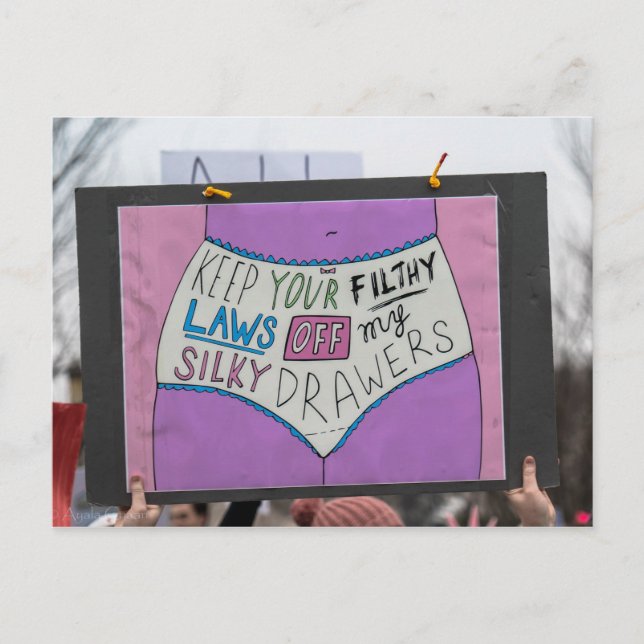 KEEP YOUR FILTHY
LAWS OFF my
SILKY DRAWERS